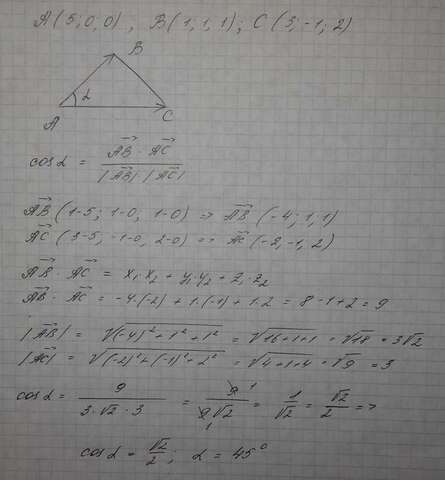 A(5; 0; 0), B(1; 1; 1); C(3; -1; 2)
B
α
A
C
cos α = AB · AC / |AB| |AC|
AB (1-5; 1-0; 1-0) => AB (-4; 1; 1)
AC (3-5, -1-0, 2-0) => AC (-2, -1, 2)
AB · AC = x₁·x₂ + y₁·y₂ + z₁·z₂
AB · AC = -4·(-2) + 1·(-1) + 1·2 = 8 - 1 + 2 = 9
|AB| = √(-4)² + 1² + 1² = √16+1+1 = √18 = 3√2
|AC| = √(-2)² + (-1)² + 2² = √4+1+4 = √9 = 3
cos α = 9 / 3·√2·3 = 9 1 / 9√2 1 = 1/√2 = √2/2 =>
cos α = √2/2 ; α = 45°